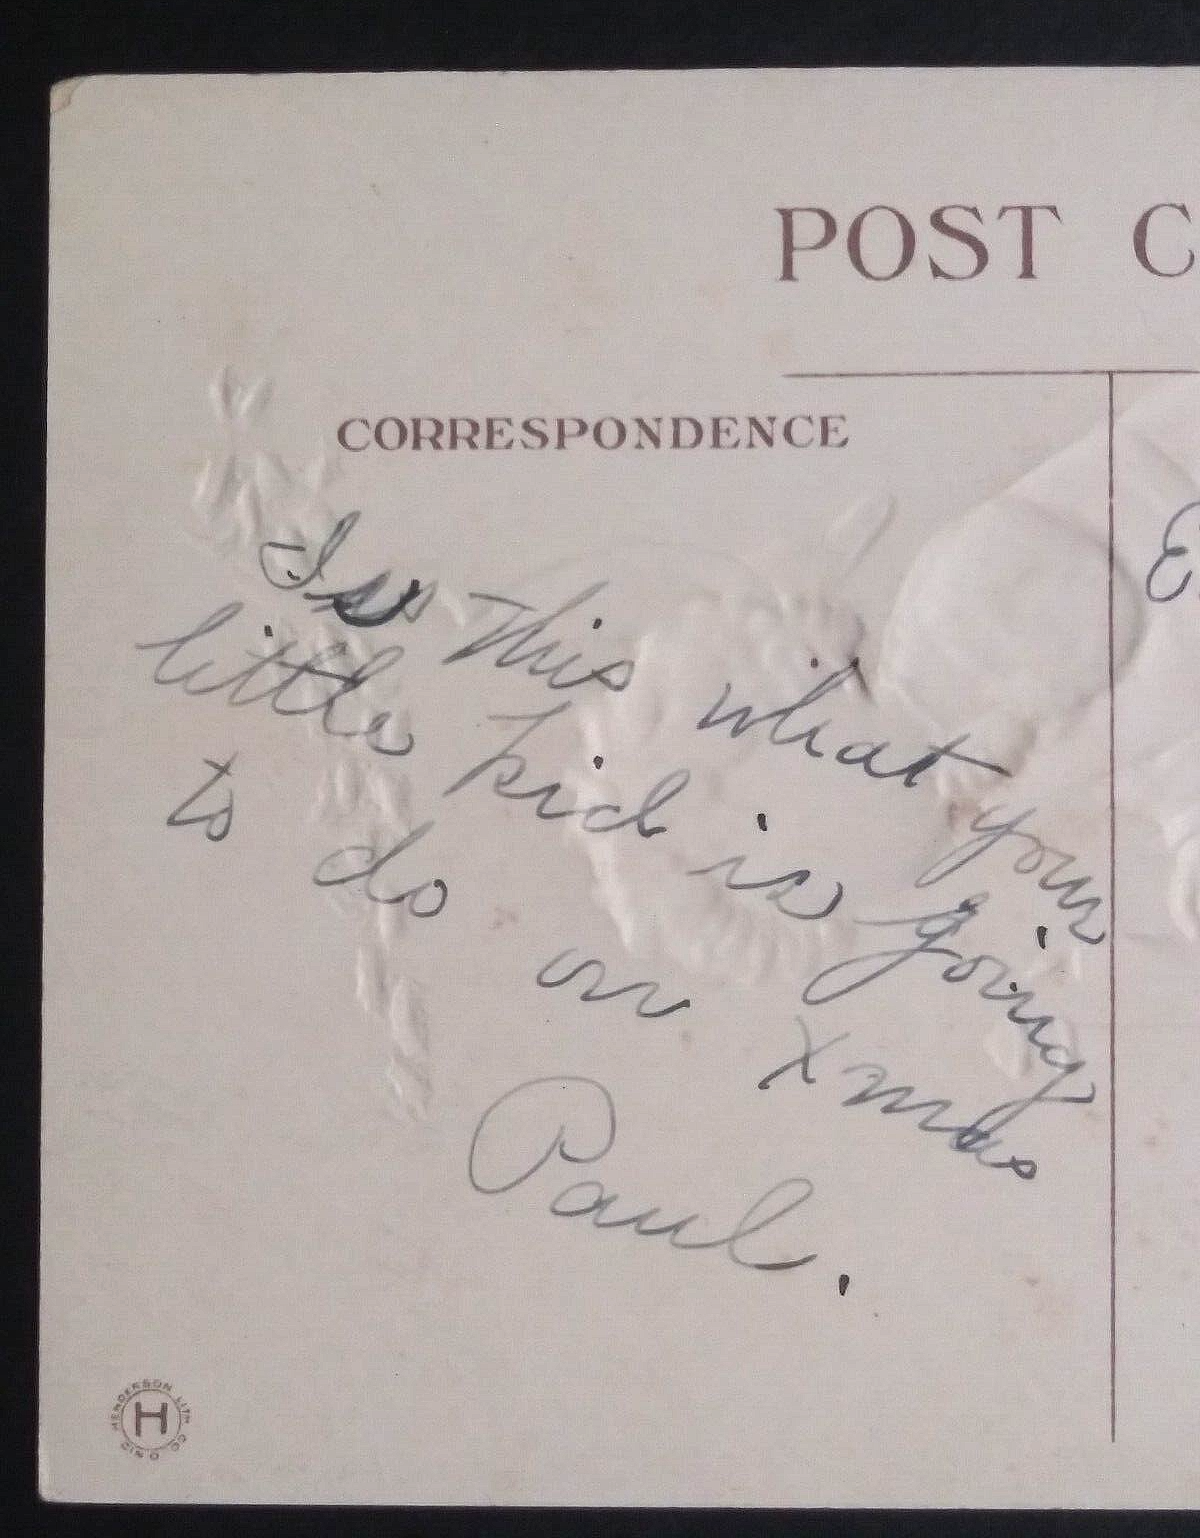 POST C
CORRESPONDENCE
Is this what your
little kid is going
to do on Xmas
Paul.
E
HENDERSON LITH CO. CIN O
H